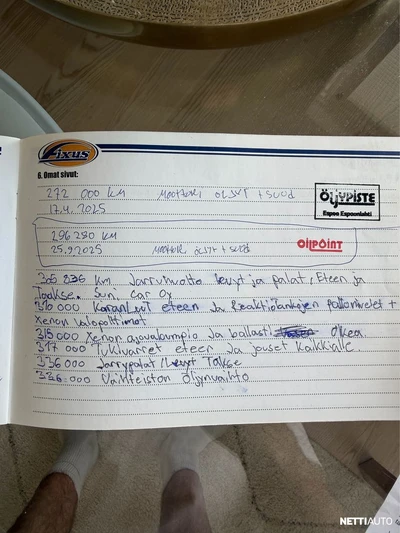 Fixus
6. Omat sivut:
272 000 KM Moottori öLJYT + SUOD
17.4.2025
ÖLJYPISTE
Espoo Espoonlahti
296 280 KM
25.9.2025 Moottori öLJYT + SUOD
OILPOINT
km Jarruhuolto Levyt ja palat, Eteen ja
Taakse. Suni Car Oy
eteen ja Reaktiotankojen Pallonivelet +
Xenon valopolttimot
Xenon ajovaloumpio Ja ballasti Oikea.
317 000 Tukivarret eteen Ja jouset Kaikkialle.
336 000 Jarrypalat/Levyt Takse
336.000 Vaihteiston Öljynvaihto
NETTIAUTO